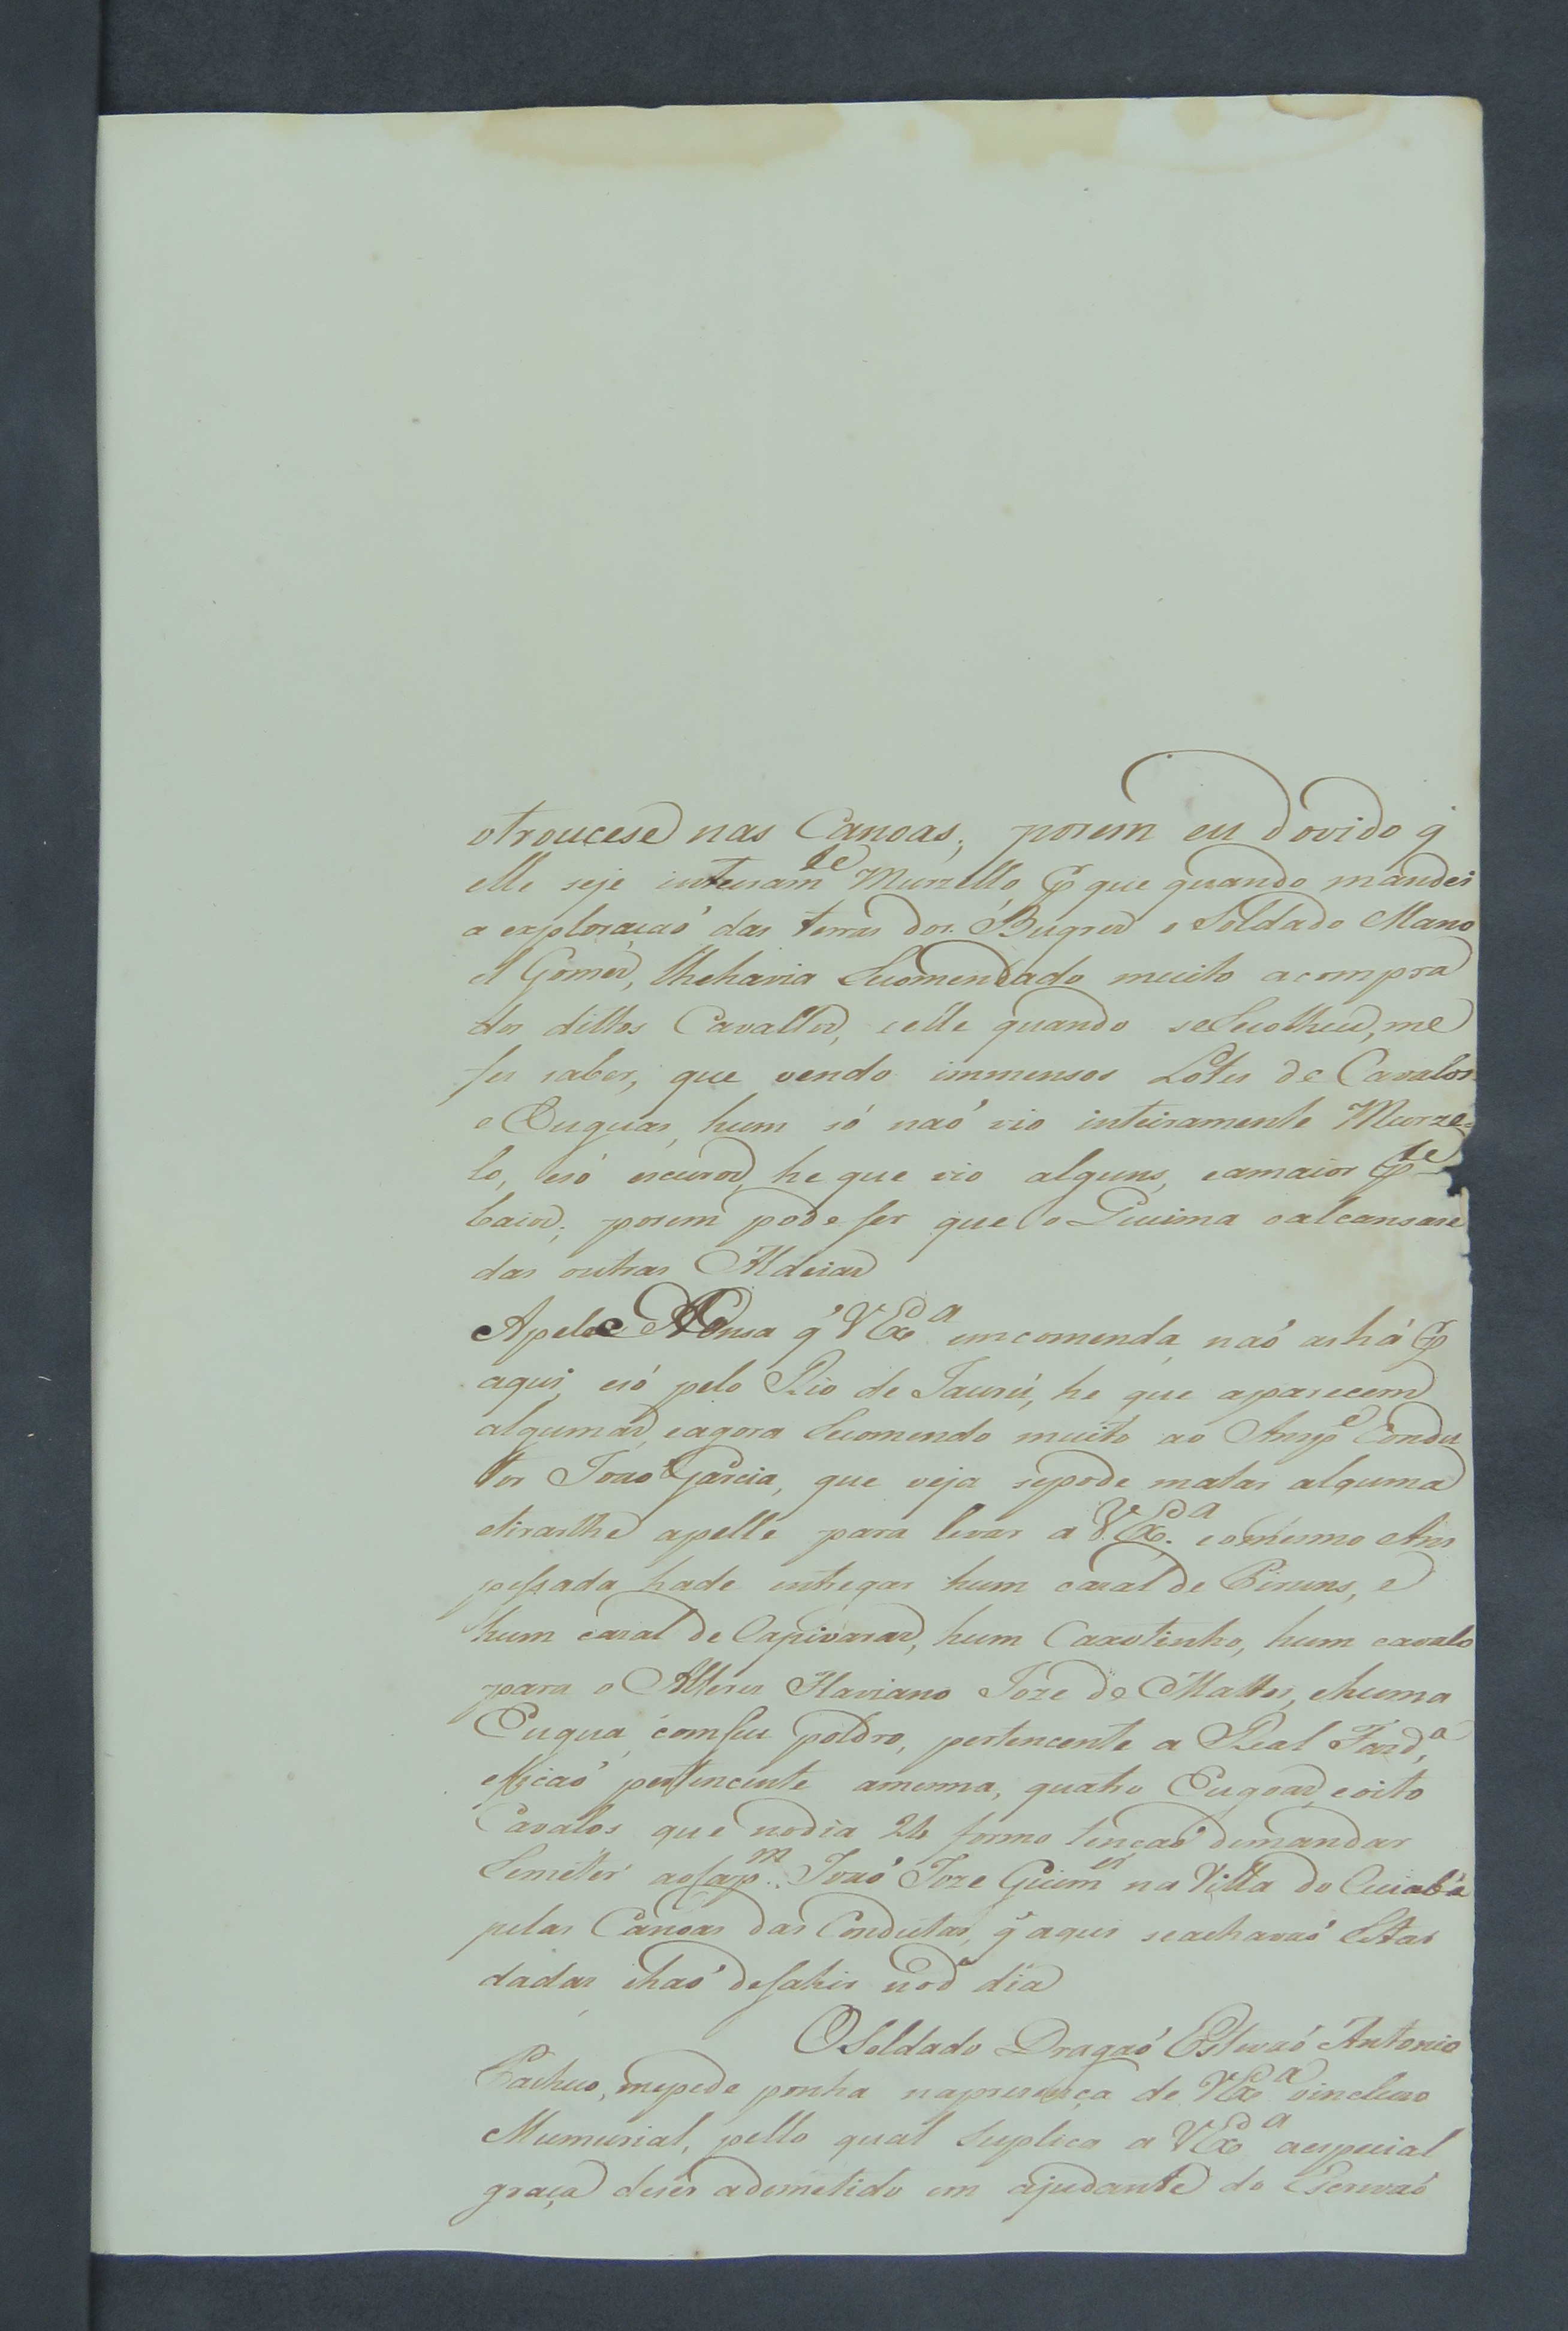 otroucese nas Canoas, porem eu dovido q̃
elle seje inteiram.te Murzello, p.r que quando mandei
a exploraçaó das terras dos Bugres o Soldado Mano
el Gomes, lhehavia Recomendado muito acompra
dos dittos Cavallos, eelle quando seRecolheu, me
fes saber, que vendo immensos Lotes de Cavalos
e Eugúas, hum só naó vio inteiramente Murze=
lo, esó escuros, he que vio alguns, eamaior p.te
baios; porem podeser que o Guima oalcansase
das outras Aldeias
Apele de Onsa q̃ VEx.a emcomenda, naó as há p.r
aqui, esó pelo Rio de Jaurú, he que aparecem
algumas, eagora Recomendo muito ao Ansp.e Condu
tor Joaó Garcia, que veja sepode matar alguma
etirarlhe apelle para levar a V.Ex.a eomesmo Ans
pessada hade entregar hum casal de Piruns, e
hum casal de Capivaras, hum Caxotinho, hum cavalo
para o Alferes Flaviano Joze de Mattos, ehuma
Eugua comseu poldro, pertencente a Real Fazd.a
eficaó pertencente amesma, quatro Eugoas, eoito
Cavalos que nodia 24 formo tençaó demandar
Remetter aoCap.m Joaó Joze Guim.es na Villa do Cuiabá
pelas Canoas das Condutas, q̃ aqui seachavaó Esta
dadas ehaó desahir nod.o dia
OSoldado Dragaó Estevaó Antonio
Pacheco, mepede ponha napresença de VEx.a oincluzo
Mumurial, pello qual Suplica a VEx.a aespecial
graça deser ademetido em ajudante do Escrivaó